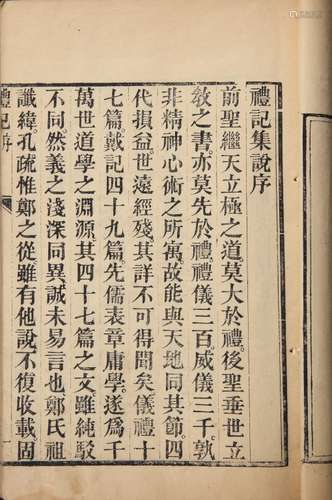 禮記集說序
前聖繼天立極之道莫大於禮後聖垂世立
敎之書亦莫先於禮禮儀三百威儀三千孰
非精神心術之所寓故能與天地同其節四
代損益世遠經殘其詳不可得聞矣儀禮十
七篇戴記四十九篇先儒表章庸學遂爲千
萬世道學之淵源其四十七篇之文雖純駁
不同然義之淺深同異誠未易言也鄭氏祖
讖緯孔疏惟鄭之從雖有他說不復收載固
禮記序
一